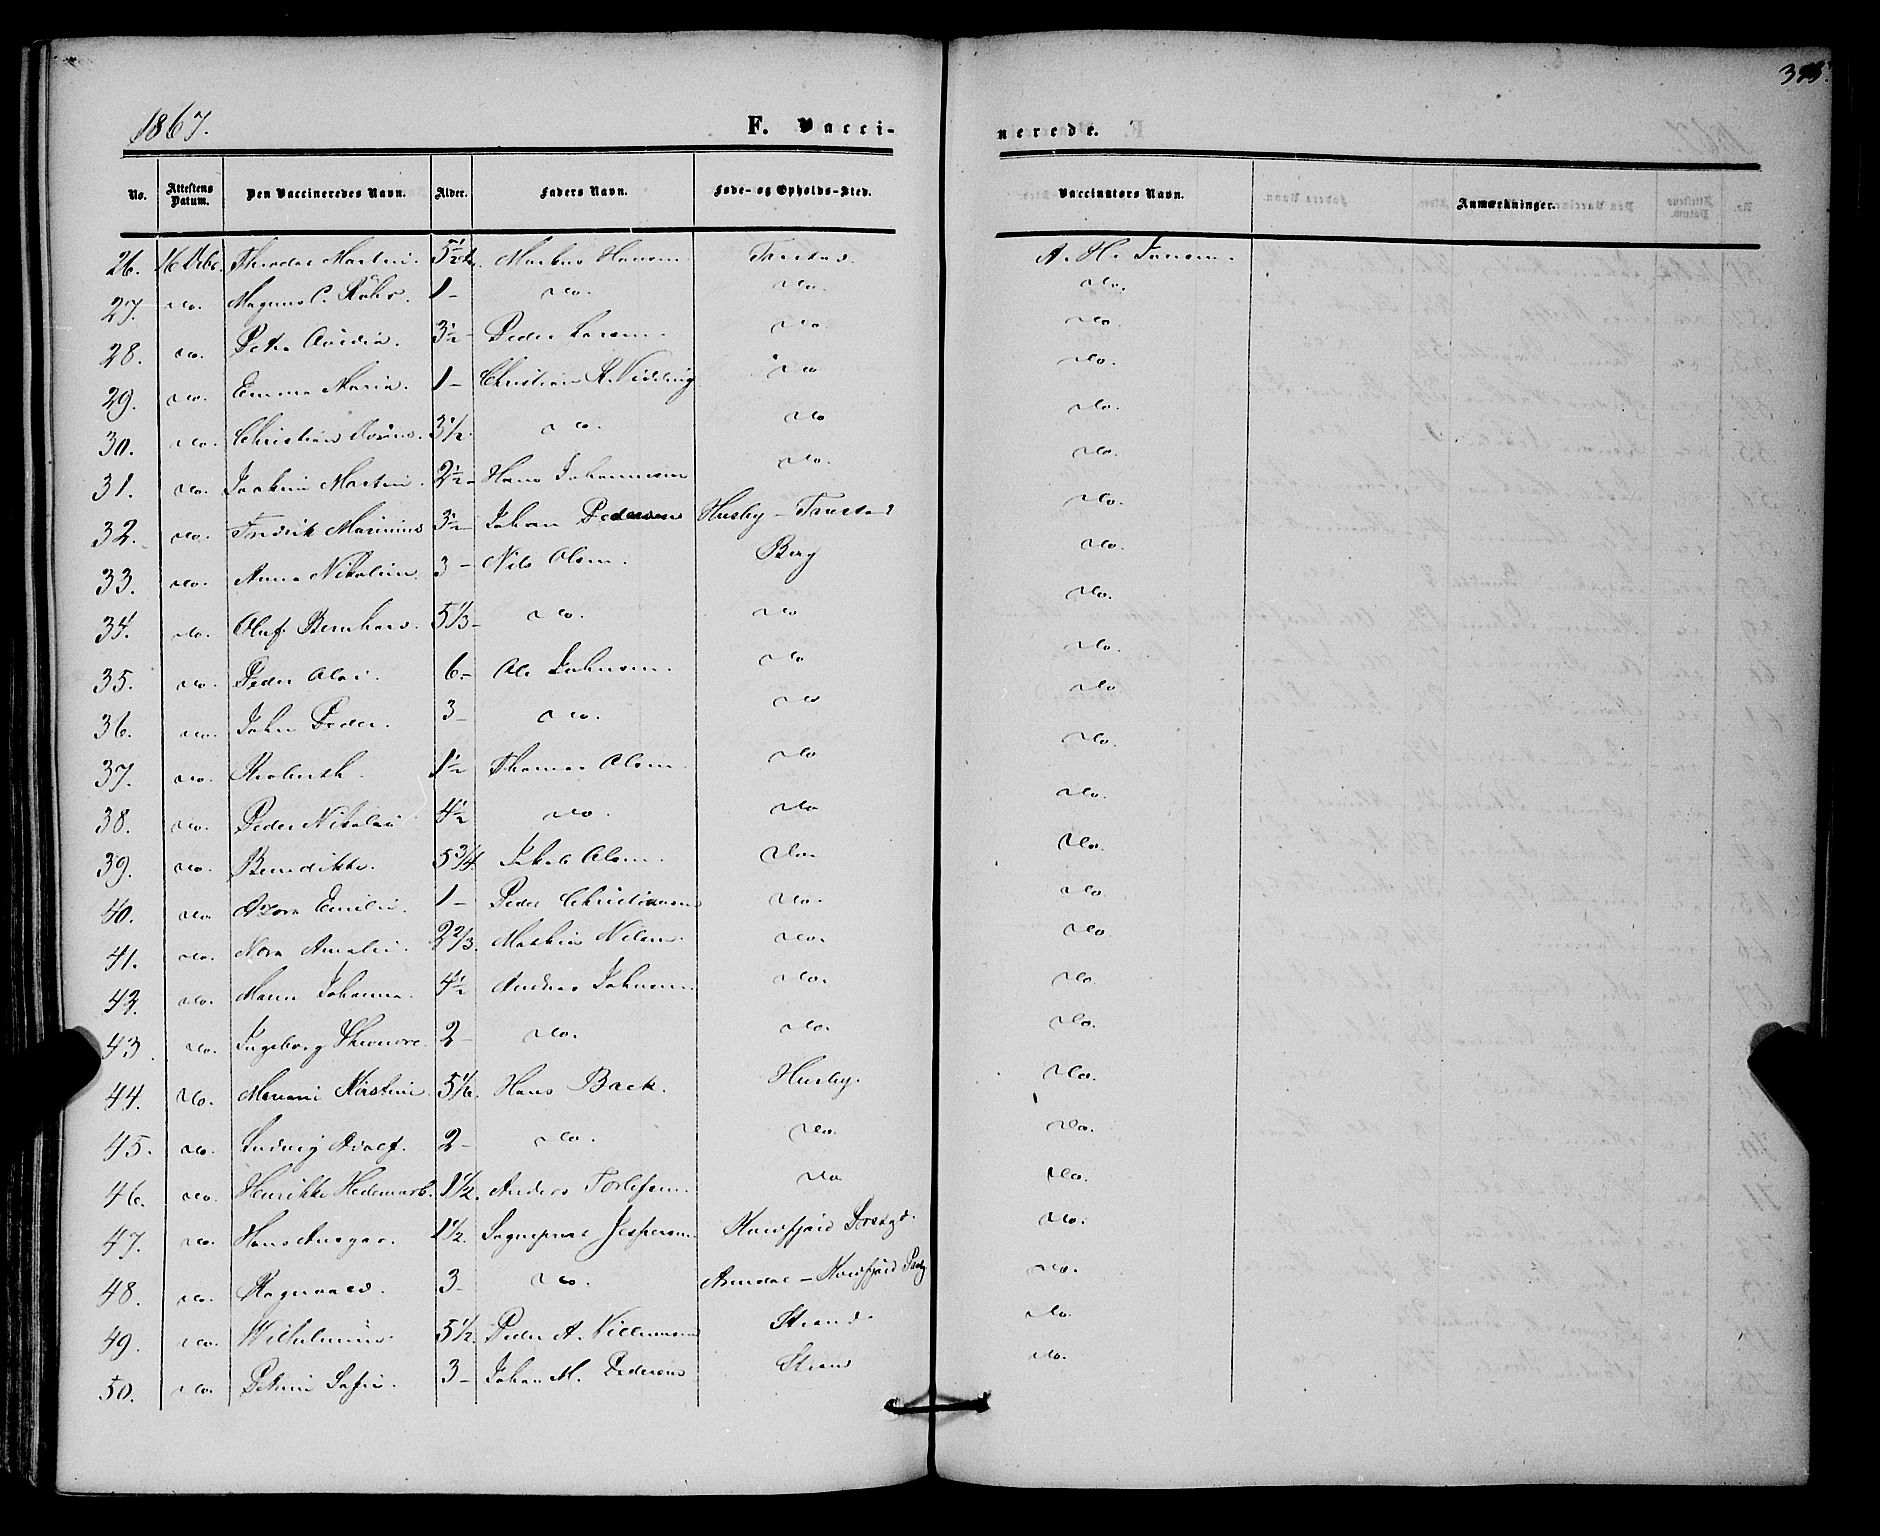 1867.
F. Vacci-
nerede.
375.
No. Attestens Datum. Den Vaccineredes Navn. Alder. Faders Navn. Føde- og Opholds-Sted. Vaccinators Navn. Anmærkninger.
26. Theodor Martin. 5½ Markus Hansen Trestad. A. H. Jansen.
27. do. Magnus C. Röhr. 1- do. do. do.
28. do. Petra 3½- Peder Larsen. do. do.
29. do. Emma Maria. 1- Christian do do.
30. do. Christian 3½ do. do do.
31. do. Joakim Martin. 2½- Hans Johannesen do. do.
32. do. Fredrik Marinius 3½- Johan Pedersen Husby - Trestad do.
33. do. Anna Nikoline. 3- Nils Olsen. Berg do.
34. do. Oluf Bernhard. 5⅓- do. do do.
35. do. Peder Olai. 6- Ole Johnsen. do do.
36. do. John Peder. 3- do. do do
37. do. 1½ Thomas Olsen. do do.
38. do. Peder Nikolai 4½ do. do do.
39. do. Benedikte. 5¾. Jakob Olsen. do. do.
40. do. Emilie. 1- Peder Christiansen do. do.
41. do. Nora Amalie. 2⅔. Mathias Nilsen. do. do.
42. do. Johanna. 4½ Andreas Johnsen. do. do.
43. do. Ingeborg 2- do. do. do.
44. do. Mariani Kirstine. 5⅙. Hans Back. Husby. do.
45. do. Ludvig Adolf. 2- do. do. do.
46. do. Henrikke Hedemark. 1½. Anders do do.
47. do. Hans Ansgar. 1½. Jespersen do.
48. do. Ragnvald. 3- do. Arendal - do.
49. do. Wilhelmine. 5½. Peder A. Villumsen Strand. do.
50. do. Petrine Sofie. 3- Johan M. Pedersen Strand do.